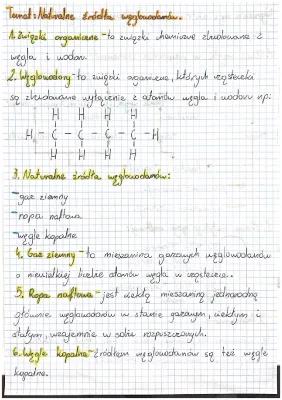 Temat: Naturalne źródła węglowodorów.
1. Związki organiczne - to związki chemiczne zbudowane z
węgla i wodoru.
2. Węglowodory - to związki organiczne, których cząsteczki
są zbudowane wyłącznie z atomów węgla i wodoru np.
H H H H
H - C - C - C - C - H
H H H H
3. Naturalne źródła węglowodorów:
- gaz ziemny
- ropa naftowa
- węgle kopalne
4. Gaz ziemny - to mieszanina gazowych węglowodorów
o niewielkiej liczbie atomów węgla w cząsteczce.
5. Ropa naftowa - jest ciekłą mieszaniną jednorodną
głównie węglowodorów w stanie gazowym, ciekłym i
stałym, wzajemnie w sobie rozpuszczonych.
6. Węgle kopalne - źródłem węglowodorów są też węgle
kopalne.